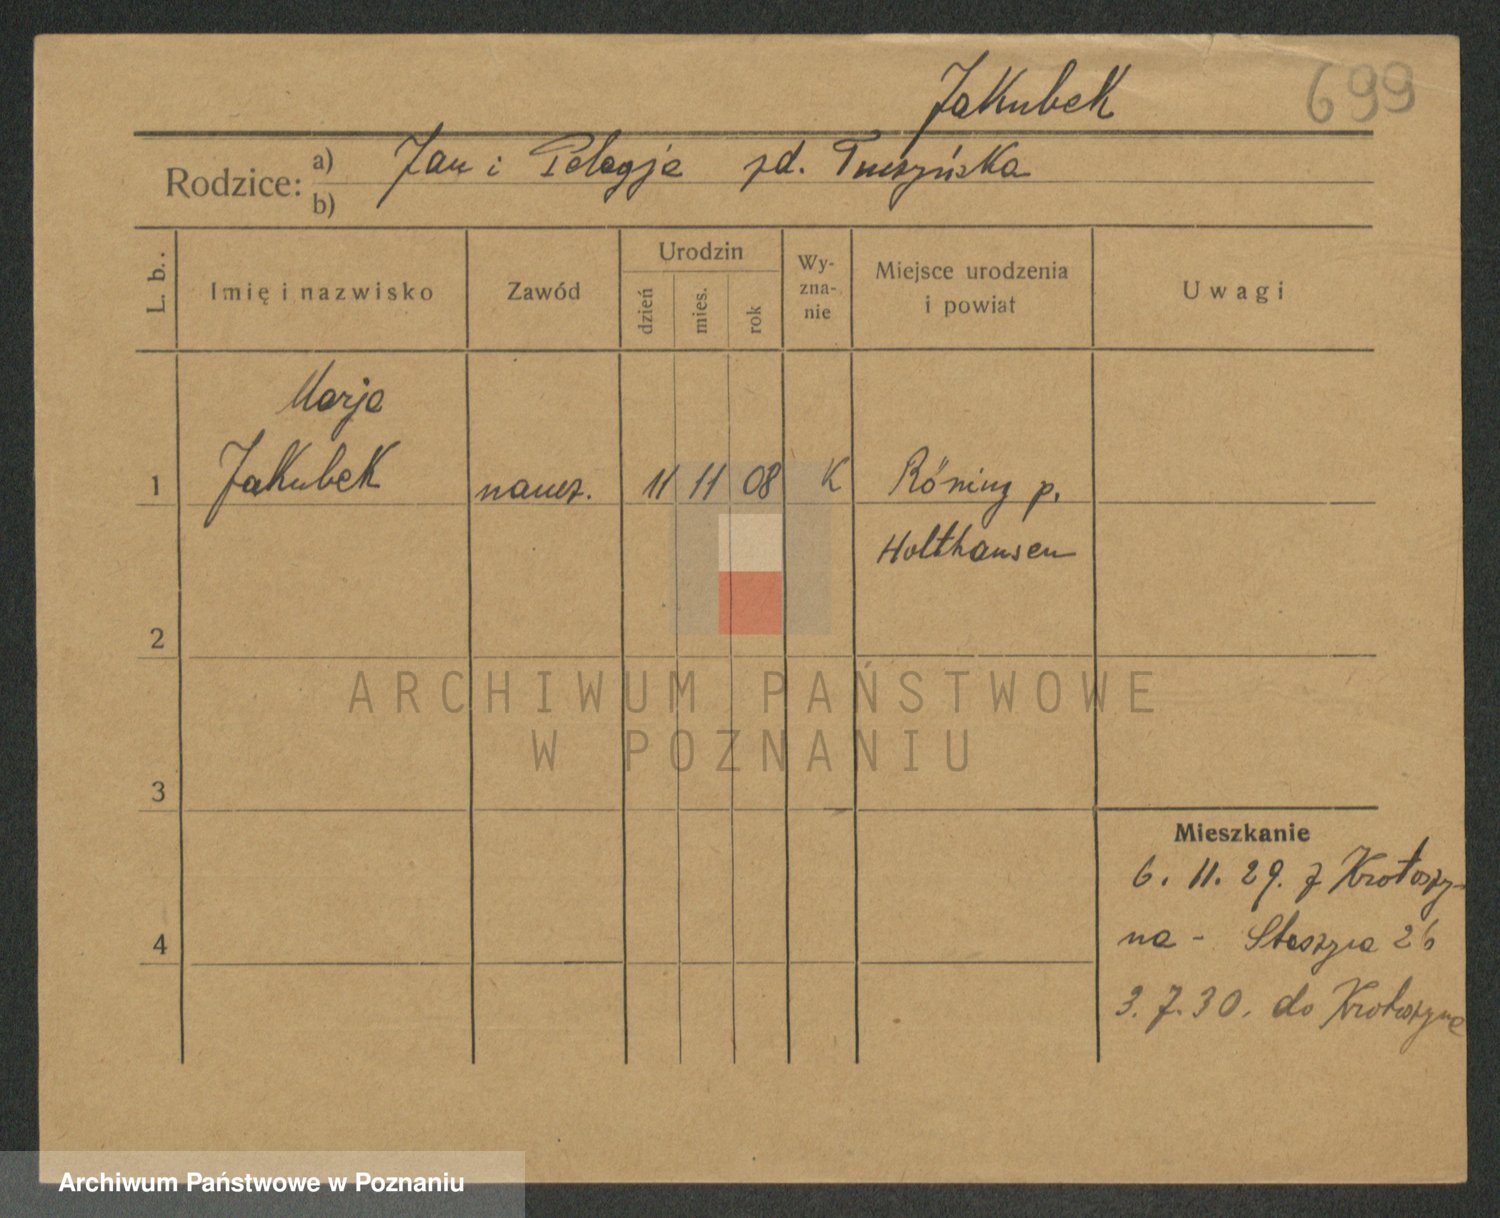 Jakubek 699
Rodzice: a) Jan i Pelagja zd. Tuszyńska
b)
L. b.. Imię i nazwisko Zawód Urodzin dzień mies. rok Wy-zna-nie Miejsce urodzenia i powiat Uwagi
Marja
1 Jakubek naucz. 11 11 08 K Röning p.
Holthausen
2
ARCHIWUM PAŃSTWOWE
W POZNANIU
3
Mieszkanie
6. 11. 29. z Krotoszy-
4 na - Staszyca 26
3. 7. 30. do Krotoszyna
Archiwum Państwowe w Poznaniu